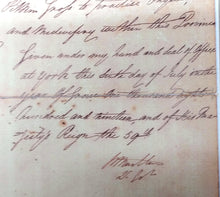 and Midwifery within the Province
Given under my hand and Seal of Office
at York this sixth day of July in the
year of Our Lord one Thousand eight
hundred and nineteen, and of His Ma
jesty's Reign the 59th